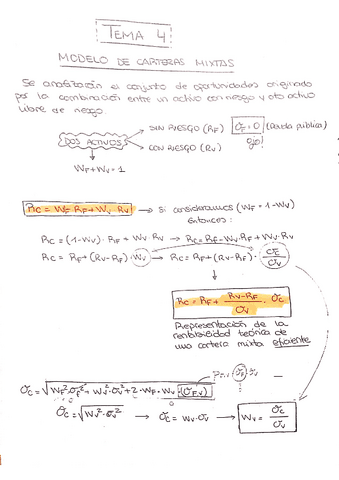 TEMA 4
MODELO DE CARTERAS MIXTAS
Se analizarán el conjunto de oportunidades originado
por la combinación entre un activo con riesgo y otro activo
libre de riesgo.
DOS ACTIVOS → SIN RIESGO (RF) σF = 0 (Deuda pública)
→ CON RIESGO (RV) ojo!
WF + WV = 1
RC = WF·RF + WV·RV → Si consideramos (WF = 1-WV)
Entonces:
RC = (1-WV)·RF + WV·RV → RC = RF - WV·RF + WV·RV
RC = RF + (RV-RF)·WV → RC = RF + (RV-RF)· σC/σV
RC = RF + (RV-RF)/σV · σC
Representación de la
rentabilidad teórica de
una cartera mixta eficiente
σC = √WF²·σF² + WV²·σV² + 2·WF·WV·(σF,V)
σC = √WV²·σV² → σC = WV·σV → WV = σC/σV